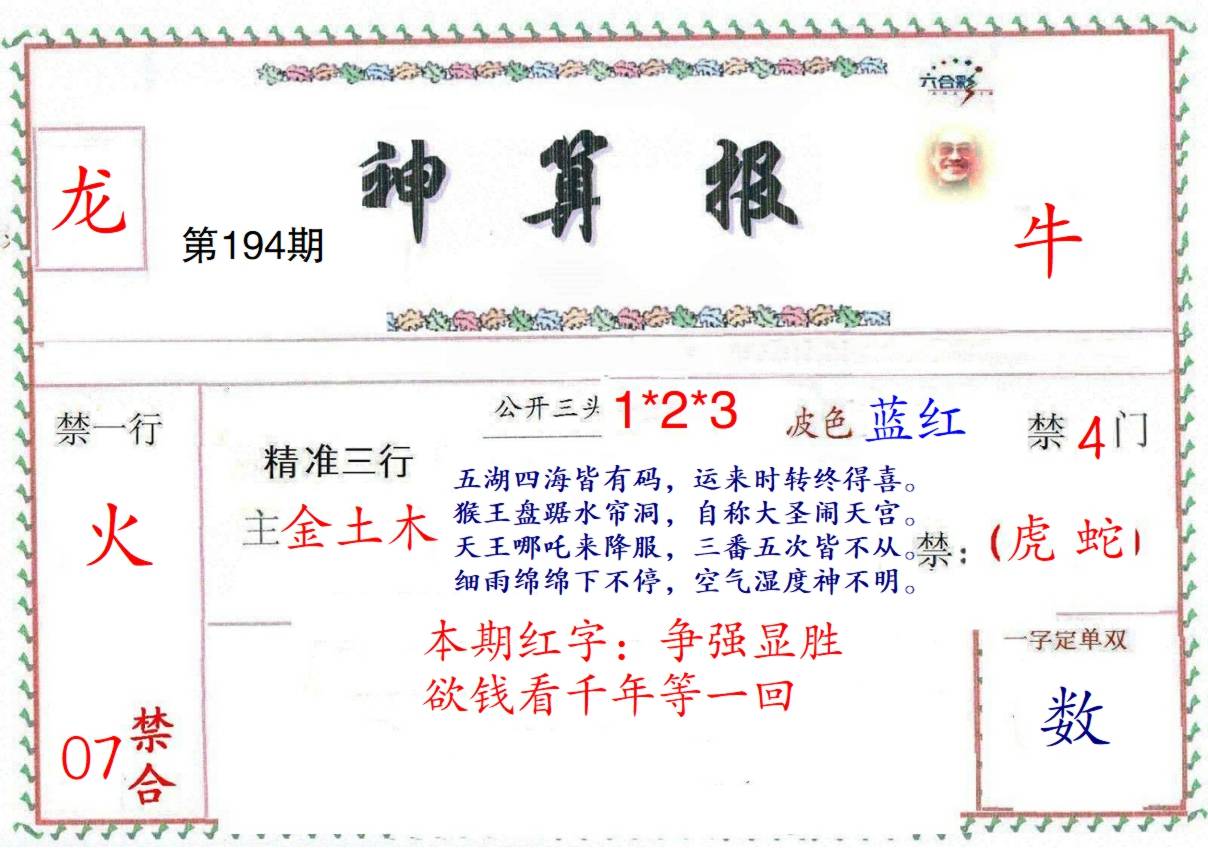 六合彩
神算报
龙
第194期
牛
禁一行
火
07禁合
精准三行
主金土木
公开三头 1*2*3
波色 蓝红
禁4门
五湖四海皆有码，运来时转终得喜。
猴王盘踞水帘洞，自称大圣闹天宫。
天王哪吒来降服，三番五次皆不从。
细雨绵绵下不停，空气湿度神不明。
禁：（虎 蛇）
本期红字：争强显胜
欲钱看千年等一回
一字定单双
数